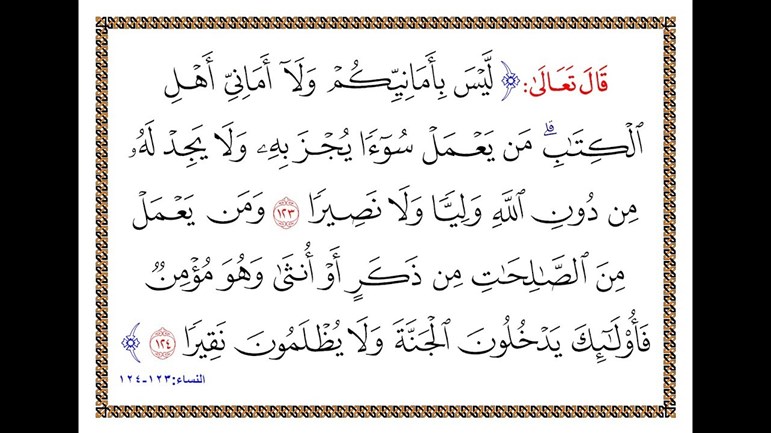 قَالَ تَعَالَىٰ: ﴿ لَّيۡسَ بِأَمَانِيِّكُمۡ وَلَآ أَمَانِيِّ أَهۡلِ
ٱلۡكِتَٰبِۗ مَن يَعۡمَلۡ سُوٓءٗا يُجۡزَ بِهِۦ وَلَا يَجِدۡ لَهُۥ
مِن دُونِ ٱللَّهِ وَلِيّٗا وَلَا نَصِيرٗا ١٢٣ وَمَن يَعۡمَلۡ
مِنَ ٱلصَّٰلِحَٰتِ مِن ذَكَرٍ أَوۡ أُنثَىٰ وَهُوَ مُؤۡمِنٞ
فَأُوْلَٰٓئِكَ يَدۡخُلُونَ ٱلۡجَنَّةَ وَلَا يُظۡلَمُونَ نَقِيرٗا ١٢٤ ﴾
النساء:١٢٣-١٢٤